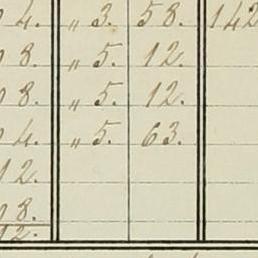 4. „ 3. 58. 142
8. „ 5. 12.
8. „ 5. 12.
4. „ 5. 63.
12.
8.
12.